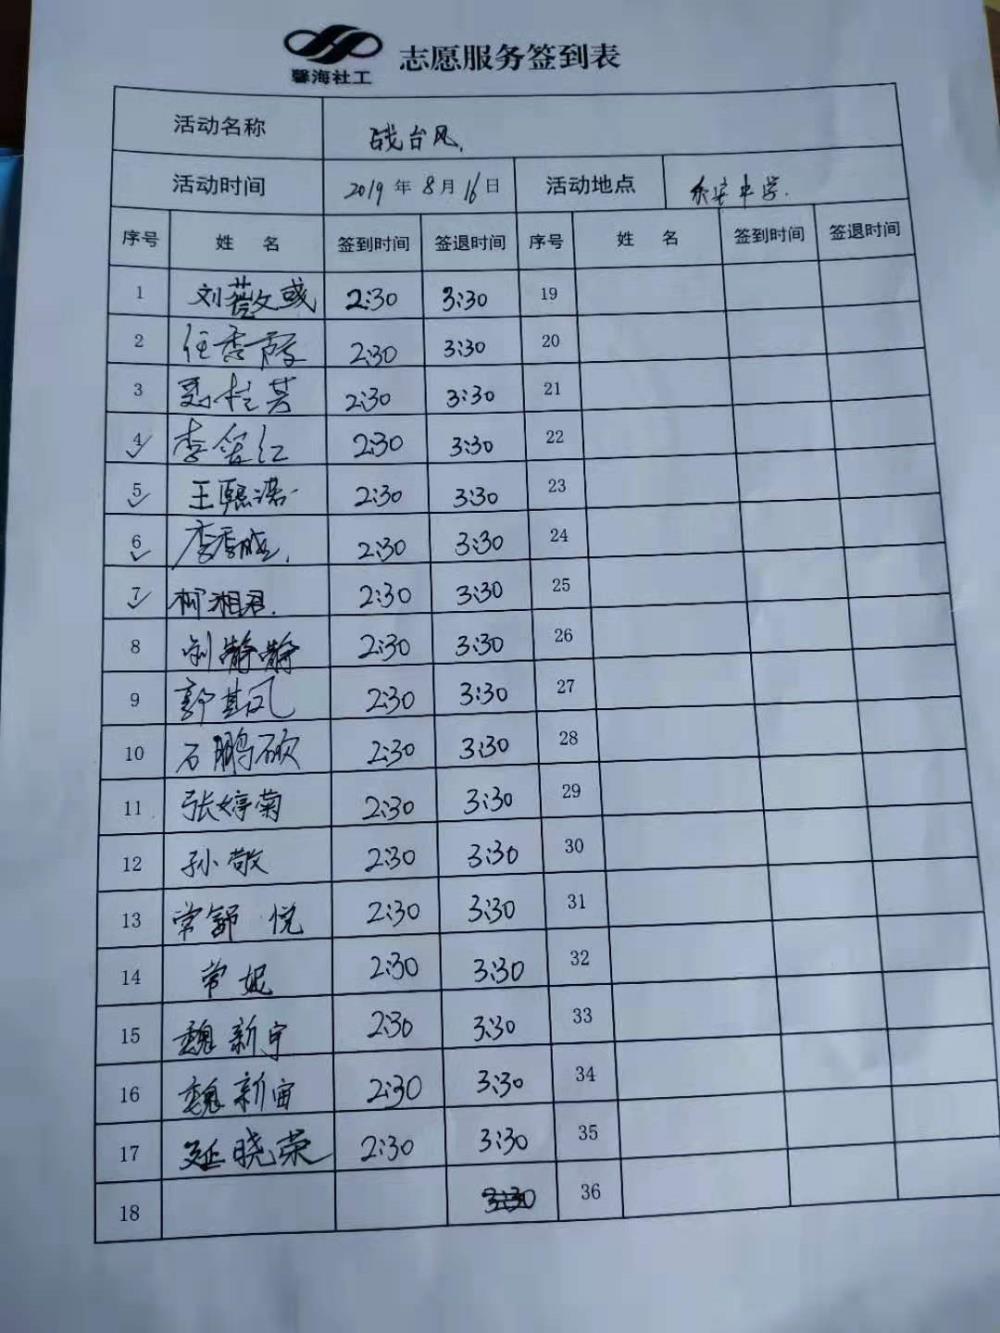 馨海社工 志愿服务签到表
活动名称 战台风.
活动时间 2019年8月16日 活动地点 中学.
序号 姓名 签到时间 签退时间 序号 姓名 签到时间 签退时间
1 刘 2:30 3:30 19
2 任秀霞 2:30 3:30 20
3 桂芳 2:30 3:30 21
4 李 红 2:30 3:30 22
5 王熙 2:30 3:30 23
6 李秀 2:30 3:30 24
7 柳湘君. 2:30 3:30 25
8 刘静静 2:30 3:30 26
9 郭基凤 2:30 3:30 27
10 石鹏 2:30 3:30 28
11 张婷菊 2:30 3:30 29
12 孙敬 2:30 3:30 30
13 常舒悦 2:30 3:30 31
14 常妮 2:30 3:30 32
15 魏新宇 2:30 3:30 33
16 魏新宙 2:30 3:30 34
17 延晓荣 2:30 3:30 35
18 36